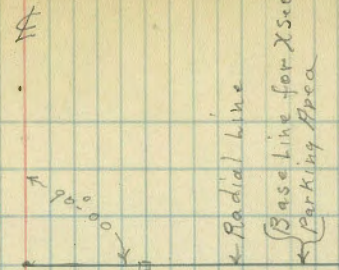 Radial Line
Base Line for XSec
Parking Area